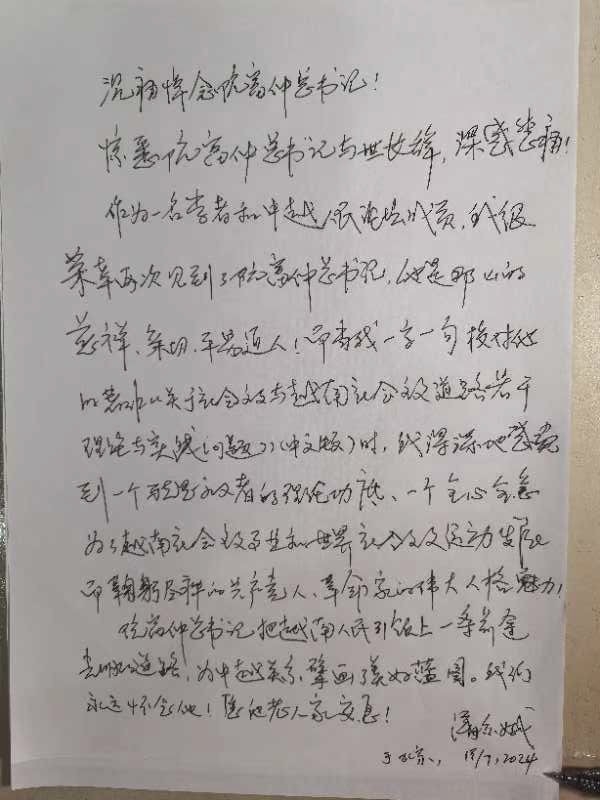 沉痛悼念阮富仲总书记！
惊悉阮富仲总书记与世长辞，深感悲痛！
作为一名学者和中越人民论坛成员，我很
荣幸再次见到了阮富仲总书记，他是那么的
慈祥、亲切、平易近人！而当我一字一句校对他
的著作《关于社会主义与越南社会主义道路若干
理论与实践问题》（中文版）时，我深深地感觉
到一个马克思主义者的理论功底、一个全心全意
为了越南社会主义事业和世界社会主义运动发展
而鞠躬尽瘁的共产党人、革命家的伟大人格魅力！
阮富仲总书记把越南人民引领上一条前途
光明的道路，为中越关系擘画了美好蓝图。我们
永远怀念他！愿他老人家安息！
潘金娥
于北京，19/7, 2024